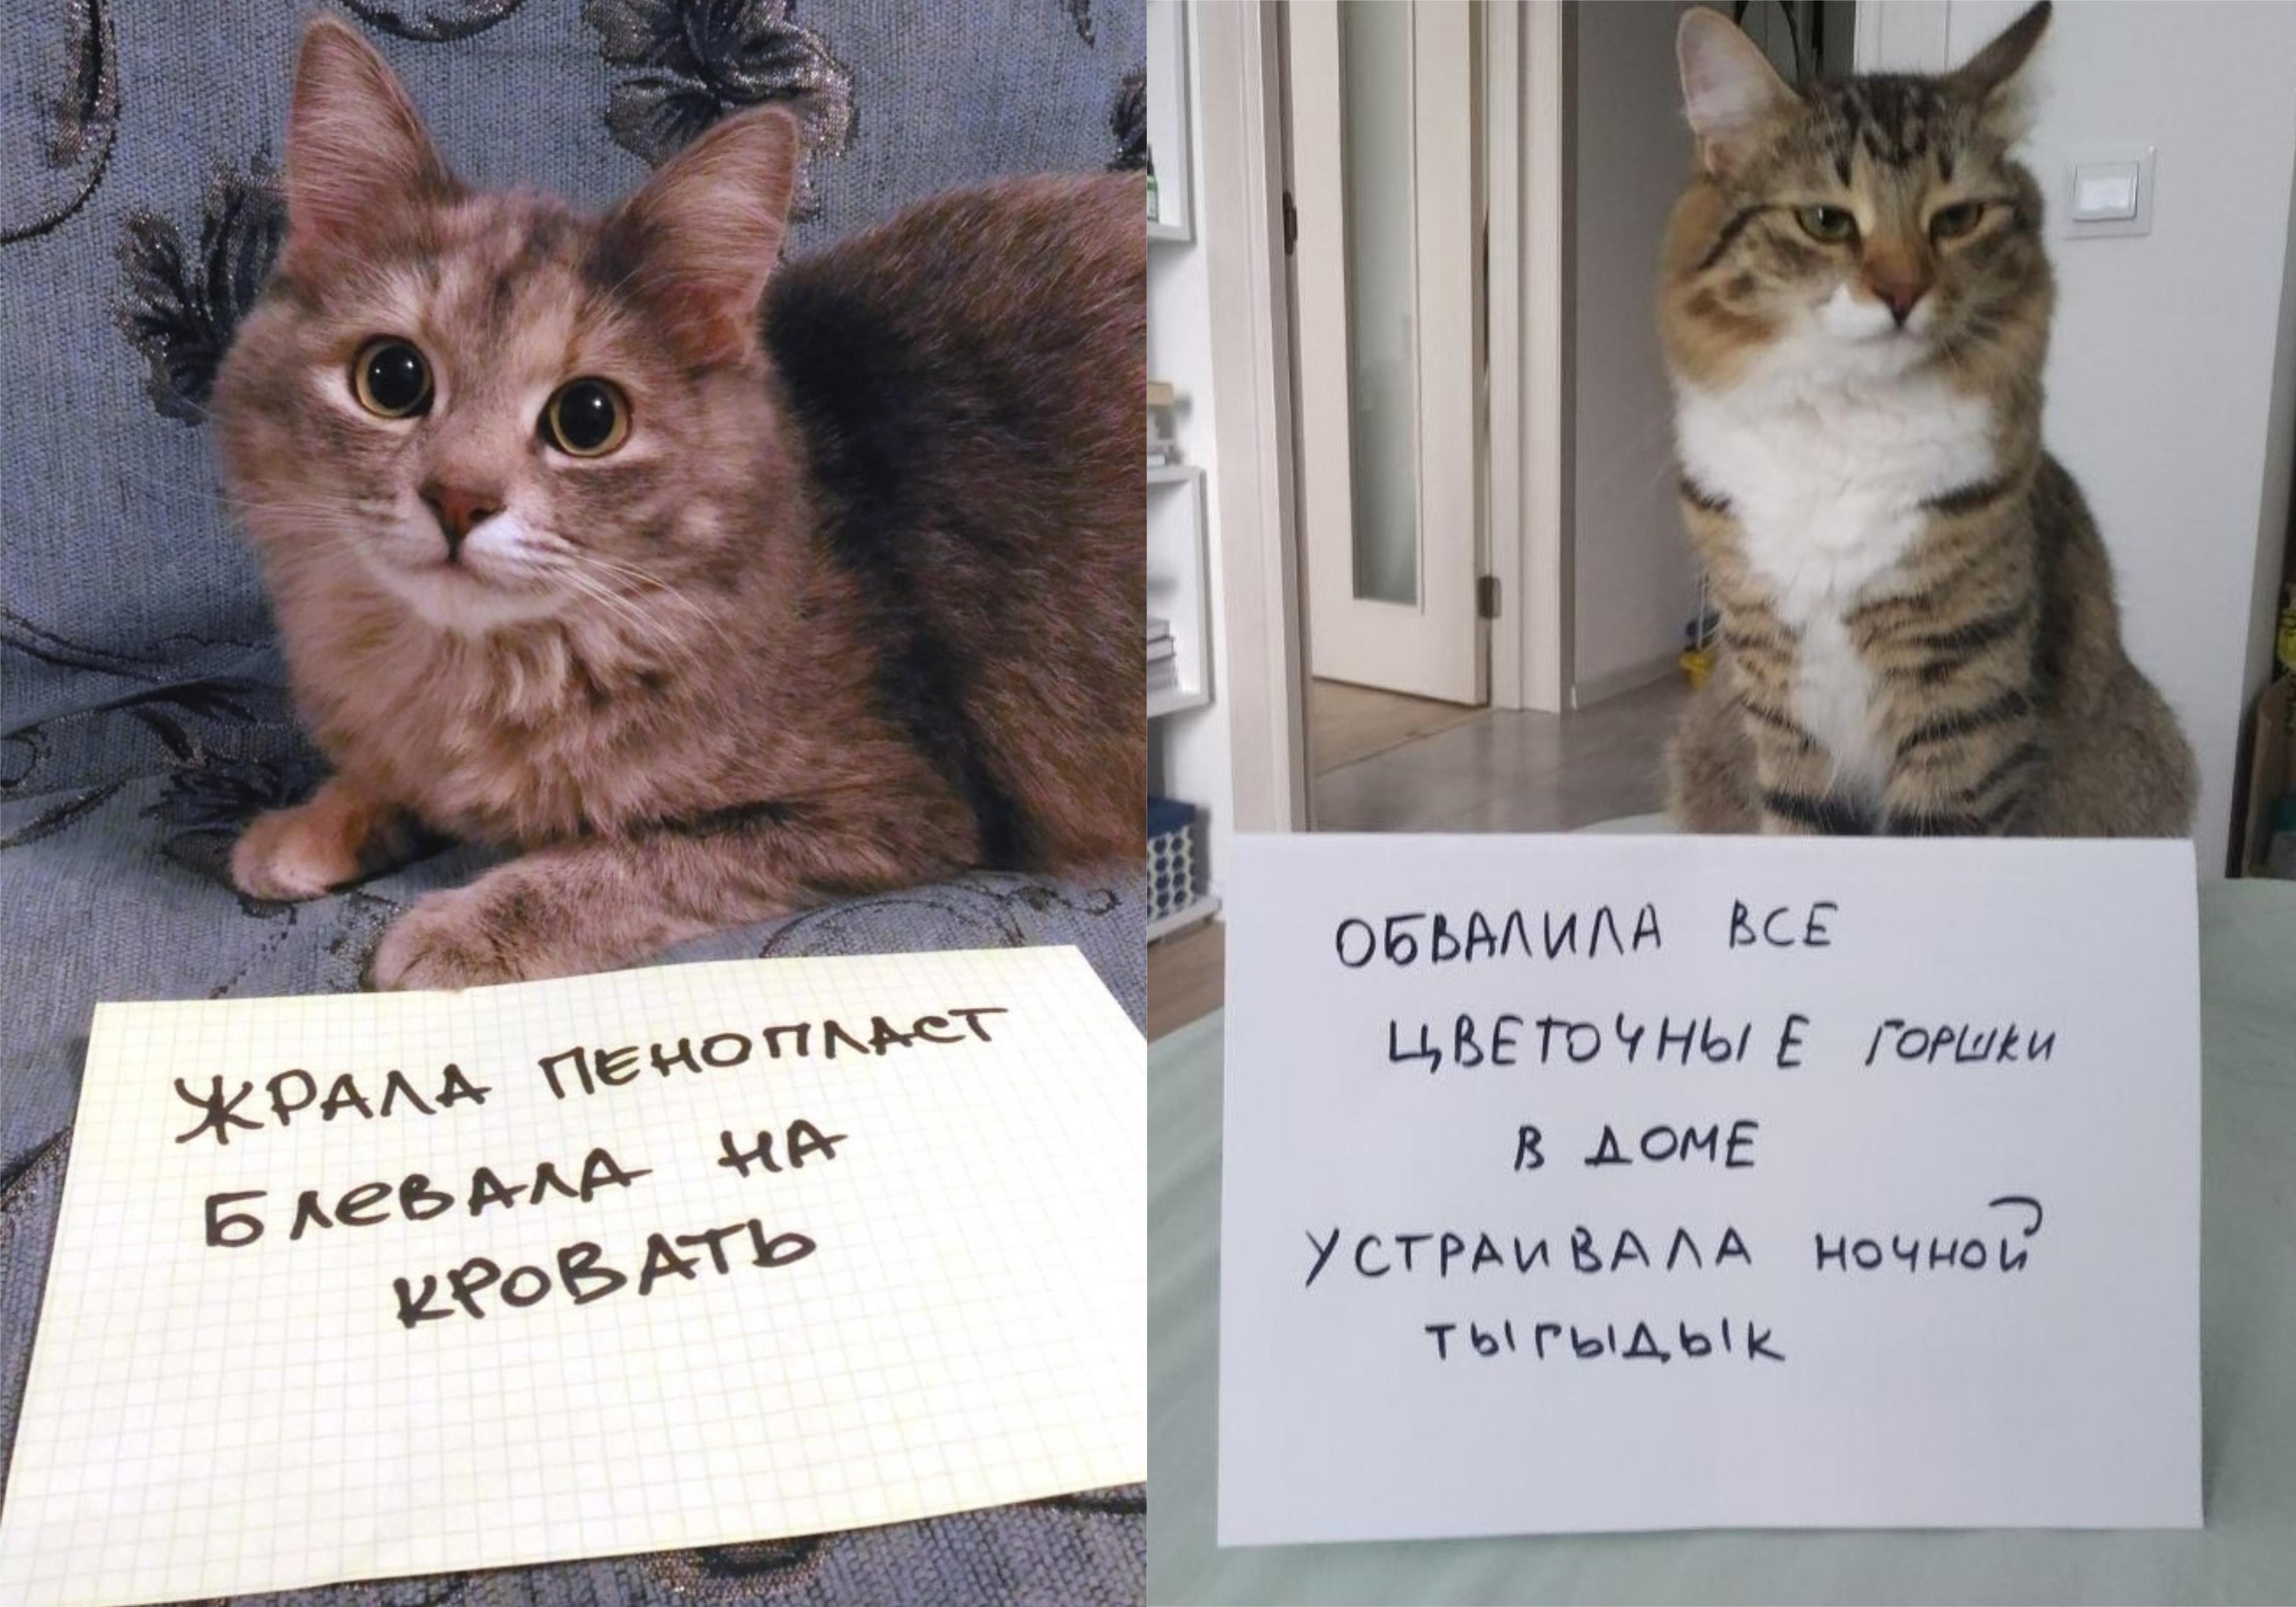 ЖРАЛА ПЕНОПЛАСТ
БЛЕВАЛА НА
КРОВАТЬ
ОБВАЛИЛА ВСЕ
ЦВЕТОЧНЫЕ ГОРШКИ
В ДОМЕ
УСТРАИВАЛА НОЧНОЙ
ТЫГЫДЫК